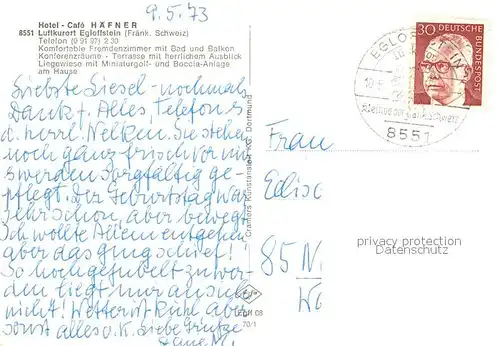 9.5.73
Hotel - Café HÄFNER
8551 Luftkurort Egloffstein (Fränk. Schweiz)
Telefon (0 91 97) 2 30
Komfortable Fremdenzimmer mit Bad und Balkon
Konferenzräume - Terrasse mit herrlichem Ausblick
Liegewiese mit Miniaturgolf- und Boccia-Anlage
am Hause
Liebste Liesel - nochmals
Dank f. Alles, Telefon
d. herrl. Nelken. Sie stehen
noch ganz frisch vor
werden sorgfältig ge-
pflegt. Der Geburtstag war
sehr schön, aber bewegt
Ich wollte Allem entgehen
aber das ging schief!
So hoch gejubelt zu wer-
den liegt mir
nicht! Wetter ist kühl aber
sonst alles o.K. Liebe Grüße
Cramers Kunstanstalt KG, Dortmund
Egff 08
70/1
EGLOFFSTEIN
10.5.
8551
30
DEUTSCHE BUNDESPOST
Frau
85
privacy protection
Datenschutz